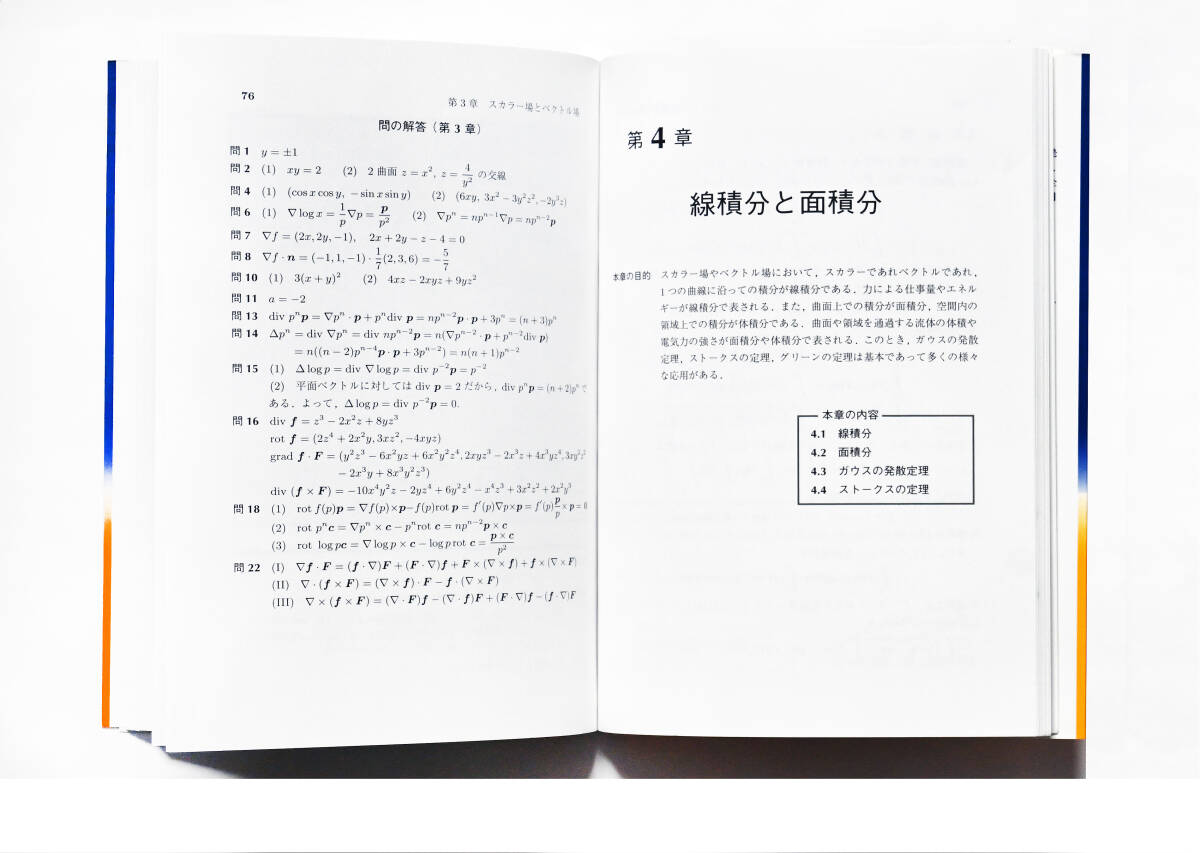 76
第 3 章 スカラー場とベクトル場
問の解答（第 3 章）
問 1 y = ±1
問 2 (1) xy = 2 (2) 2 曲面 z = x², z = 4/y² の交線
問 4 (1) (cos x cos y, − sin x sin y) (2) (6xy, 3x² − 3y²z², −2y³z)
問 6 (1) ∇ log x = 1/p ∇p = p/p² (2) ∇pⁿ = npⁿ⁻¹∇p = npⁿ⁻²p
問 7 ∇f = (2x, 2y, −1), 2x + 2y − z − 4 = 0
問 8 ∇f · n = (−1, 1, −1) · 1/7 (2, 3, 6) = −5/7
問 10 (1) 3(x + y)² (2) 4xz − 2xyz + 9yz²
問 11 a = −2
問 13 div pⁿp = ∇pⁿ · p + pⁿdiv p = npⁿ⁻²p · p + 3pⁿ = (n + 3)pⁿ
問 14 Δpⁿ = div ∇pⁿ = div npⁿ⁻²p = n(∇pⁿ⁻² · p + pⁿ⁻²div p)
= n((n − 2)pⁿ⁻⁴p · p + 3pⁿ⁻²) = n(n + 1)pⁿ⁻²
問 15 (1) Δ log p = div ∇ log p = div p⁻²p = p⁻²
(2) 平面ベクトルに対しては div p = 2 だから, div pⁿp = (n + 2)pⁿ で
ある．よって，Δ log p = div p⁻²p = 0.
問 16 div f = z³ − 2x²z + 8yz³
rot f = (2z⁴ + 2x²y, 3xz², −4xyz)
grad f · F = (y²z³ − 6x²yz + 6x²y²z⁴, 2xyz³ − 2x³z + 4x³yz⁴, 3xy²z²
− 2x³y + 8x³y²z³)
div (f × F) = −10x⁴y²z − 2yz⁴ + 6y²z⁴ − x⁴z³ + 3x²z² + 2x²y³
問 18 (1) rot f(p)p = ∇f(p)×p−f(p)rot p = f′(p)∇p×p = f′(p) p/p ×p = 0
(2) rot pⁿc = ∇pⁿ × c − pⁿrot c = npⁿ⁻²p × c
(3) rot log pc = ∇ log p × c − log p rot c = p × c/p²
問 22 (I) ∇f · F = (f · ∇)F + (F · ∇)f + F × (∇ × f) + f × (∇ × F)
(II) ∇ · (f × F) = (∇ × f) · F − f · (∇ × F)
(III) ∇ × (f × F) = (∇ · F)f − (∇ · f)F + (F · ∇)f − (f · ∇)F
第 4 章
線積分と面積分
本章の目的 スカラー場やベクトル場において，スカラーであれベクトルであれ，
1 つの曲線に沿っての積分が線積分である．力による仕事量やエネル
ギーが線積分で表される．また，曲面上での積分が面積分，空間内の
領域上での積分が体積分である．曲面や領域を通過する流体の体積や
電気力の強さが面積分や体積分で表される．このとき，ガウスの発散
定理，ストークスの定理，グリーンの定理は基本であって多くの様々
な応用がある．
本章の内容
4.1 線積分
4.2 面積分
4.3 ガウスの発散定理
4.4 ストークスの定理